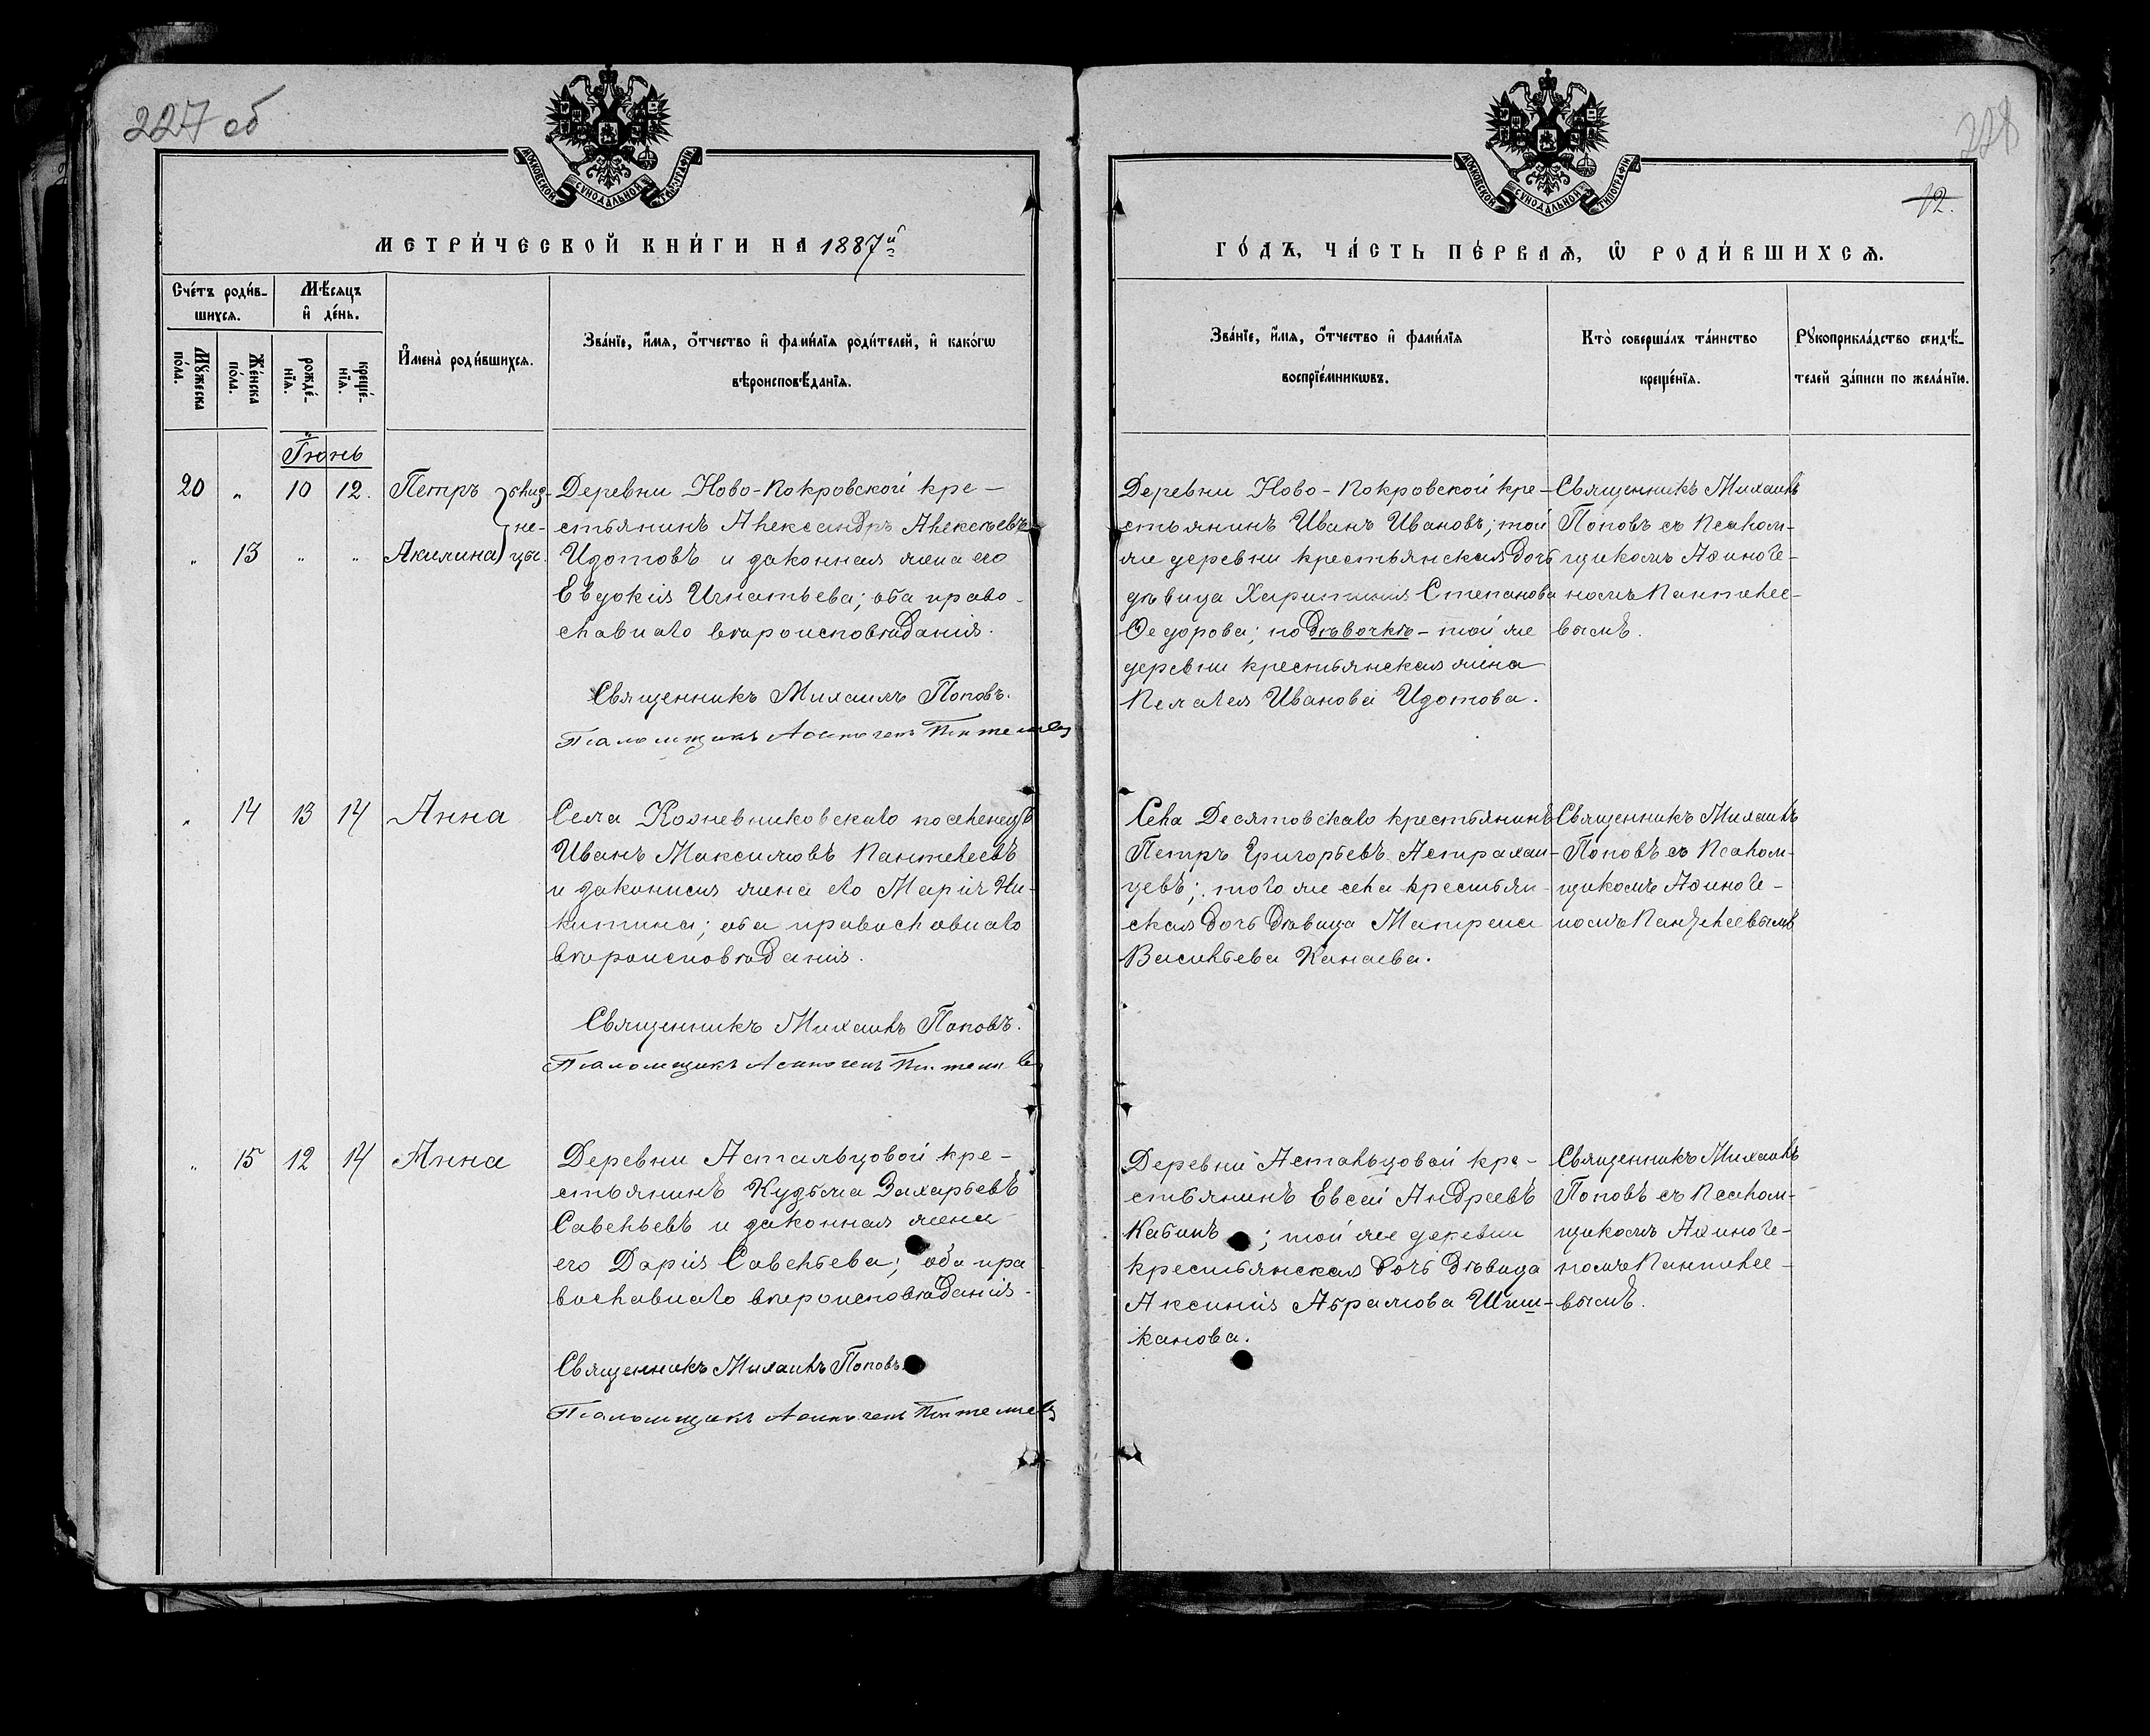 227 об
МОСКОВСКОЙ СУНОДАЛЬНОЙ ТИПОГРАФІИ
МЕТРИ́ЧЕСКОЙ КНИ́ГИ НА 1887й
Сче́тъ роди́в-
шихсѧ.
Мѣ́сѧцъ
и҆ де́нь.
Мꙋ́жеска
по́ла.
Же́нска
по́ла.
рожде́-
нїѧ.
креще́-
нїѧ.
И҆мена̀ роди́вшихсѧ.
Зва́нїе, и҆́мѧ, ѻ҆́тчество и҆ фами́лїѧ роди́телей, и҆ како́гѡ
вѣроисповѣ́данїѧ.
Іюнь
20 „ 10 12. Петръ близ-
не-
„ 13 „ „ Акилина цы.
Деревни Ново-Покровской кре-
стьянинъ Александръ Алексѣевъ
Изотовъ и законная жена его
Евдокія Игнатьева; оба право-
славнаго вѣроисповѣданія.
Священникъ Михаилъ Поповъ.
Псаломщикъ
„ 14 13 14 Анна
Села Кожевниковскаго поселенецъ
Иванъ Максимовъ Пантелеевъ
и законная жена его Марія Ни-
китина; оба православнаго
вѣроисповѣданія.
Священникъ Михаилъ Поповъ.
Псаломщикъ
„ 15 12 14 Анна
Деревни Астальцовой кре-
стьянинъ Кузьма Захарьевъ
Савельевъ и законная жена
его Дарія Савельева; оба пра
вославнаго вѣроисповѣданія.
Священникъ Михаилъ Поповъ.
Псаломщикъ
228
12.
МОСКОВСКОЙ СУНОДАЛЬНОЙ ТИПОГРАФІИ
ГО́ДЪ, ЧА́СТЬ ПЕ́РВАѦ, Ѡ҆ РОДИ́ВШИХСѦ.
Зва́нїе, и҆́мѧ, ѻ҆́тчество и҆ фами́лїѧ
воспрїе́мникѡвъ.
Кто̀ соверша́лъ та́инство
креще́нїѧ.
Рꙋкоприкла́дство свидѣ́-
телей за́писи по жела́нїю.
Деревни Ново-Покровской кре-
стьянинъ Иванъ Ивановъ; той
же деревни крестьянская дочь
дѣвица Харитинія Степанова
Ѳедорова; по дѣвочкѣ - той же
деревни крестьянская жена
Пелагея Иванова Изотова.
Священникъ Михаилъ
Поповъ съ Псалом-
щикомъ Аѳиноге-
номъ Пантелее-
вымъ.
Села Десятовскаго крестьянинъ
Петръ Григорьевъ Астрахан-
цевъ; того же села крестьян-
ская дочь дѣвица Матрена
Васильева Канаева.
Священникъ Михаилъ
Поповъ съ Псалом-
щикомъ Аѳиноге-
номъ Пантелеевымъ
Деревни Астальцовой кре-
стьянинъ Евсей Андреевъ
Кабинъ ; той же деревни
крестьянская дочь дѣвица
Аксинія Абрамова Шиш-
канова.
Священникъ Михаилъ
Поповъ съ Псалом-
щикомъ Аѳиноге-
номъ Пантелее-
вымъ.